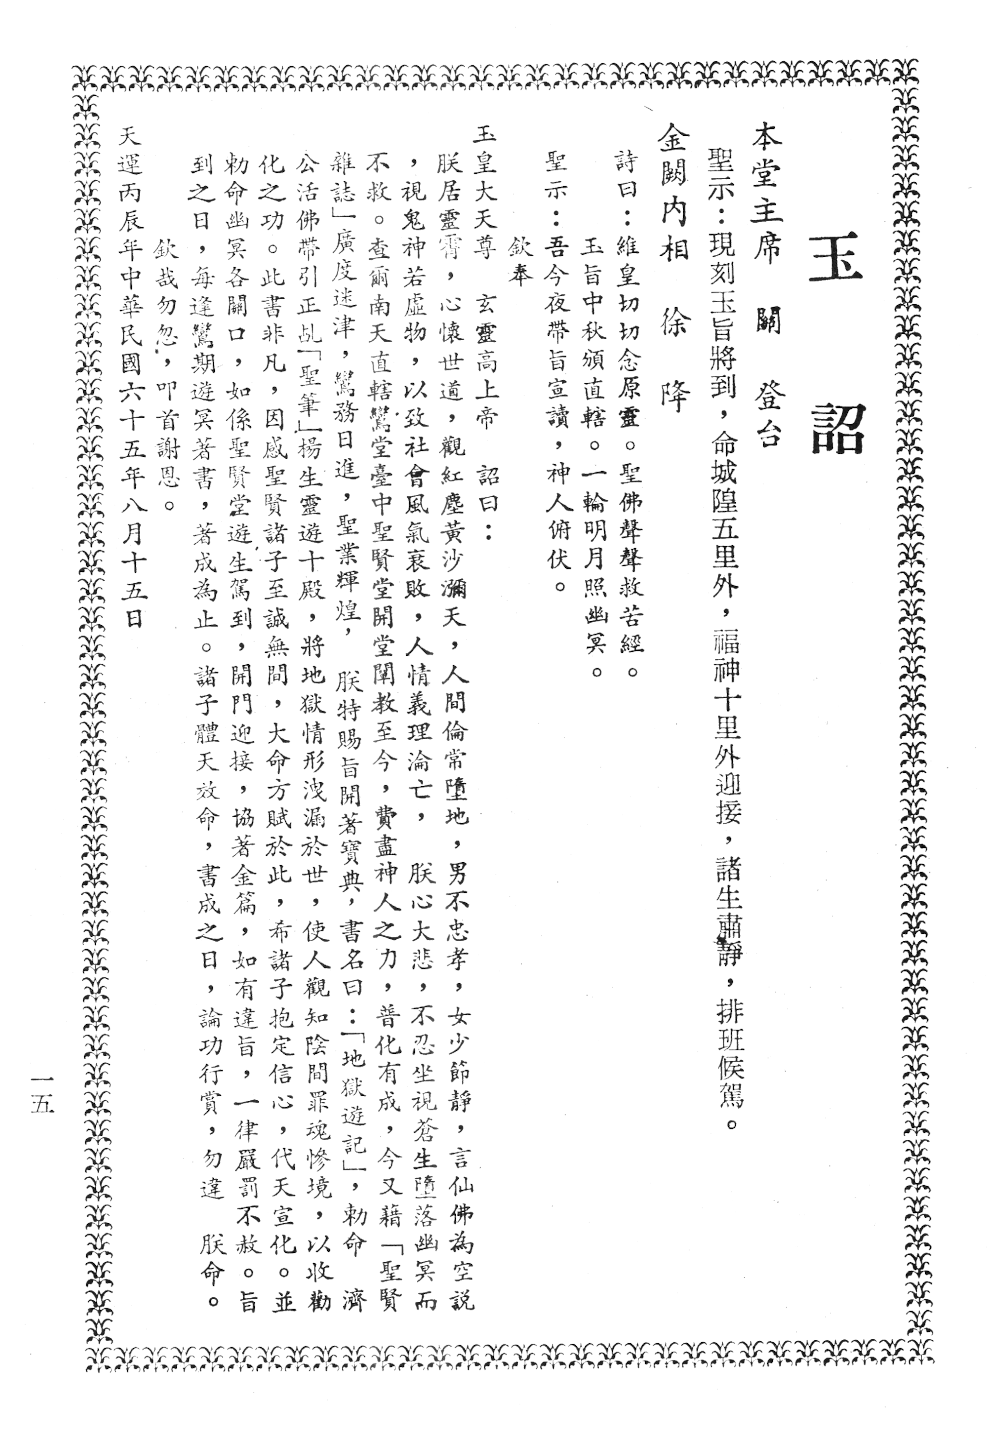 玉詔
本堂主席　關　登台
聖示：現刻玉旨將到，命城隍五里外，福神十里外迎接，諸生肅靜，排班候駕。
金闕内相　徐　降
詩曰：維皇切切念原靈。聖佛聲聲救苦經。
玉旨中秋頒直轄。一輪明月照幽冥。
聖示：吾今夜帶旨宣讀，神人俯伏。
欽奉
玉皇大天尊　玄靈高上帝　詔曰：
朕居靈霄，心懷世道，觀紅塵黃沙瀰天，人間倫常墮地，男不忠孝，女少節靜，言仙佛為空説
，視鬼神若虛物，以致社會風氣衰敗，人情義理淪亡，　朕心大悲，不忍坐視蒼生墮落幽冥而
不救。查爾南天直轄鸞堂臺中聖賢堂開堂闡教至今，費盡神人之力，普化有成，今又藉「聖賢
雜誌」廣度迷津，鸞務日進，聖業輝煌，　朕特賜旨開著寶典，書名曰：「地獄遊記」，勅命　濟
公活佛帶引正乩「聖筆」楊生靈遊十殿，將地獄情形洩漏於世，使人觀知陰間罪魂慘境，以收勸
化之功。此書非凡，因感聖賢諸子至誠無間，大命方賦於此，希諸子抱定信心，代天宣化。並
勅命幽冥各關口，如係聖賢堂遊生駕到，開門迎接，協著金篇，如有違旨，一律嚴罰不赦。旨
到之日，每逢鸞期遊冥著書，著成為止。諸子體天效命，書成之日，論功行賞，勿違　朕命。
欽哉勿忽，叩首謝恩。
天運丙辰年中華民國六十五年八月十五日
一五